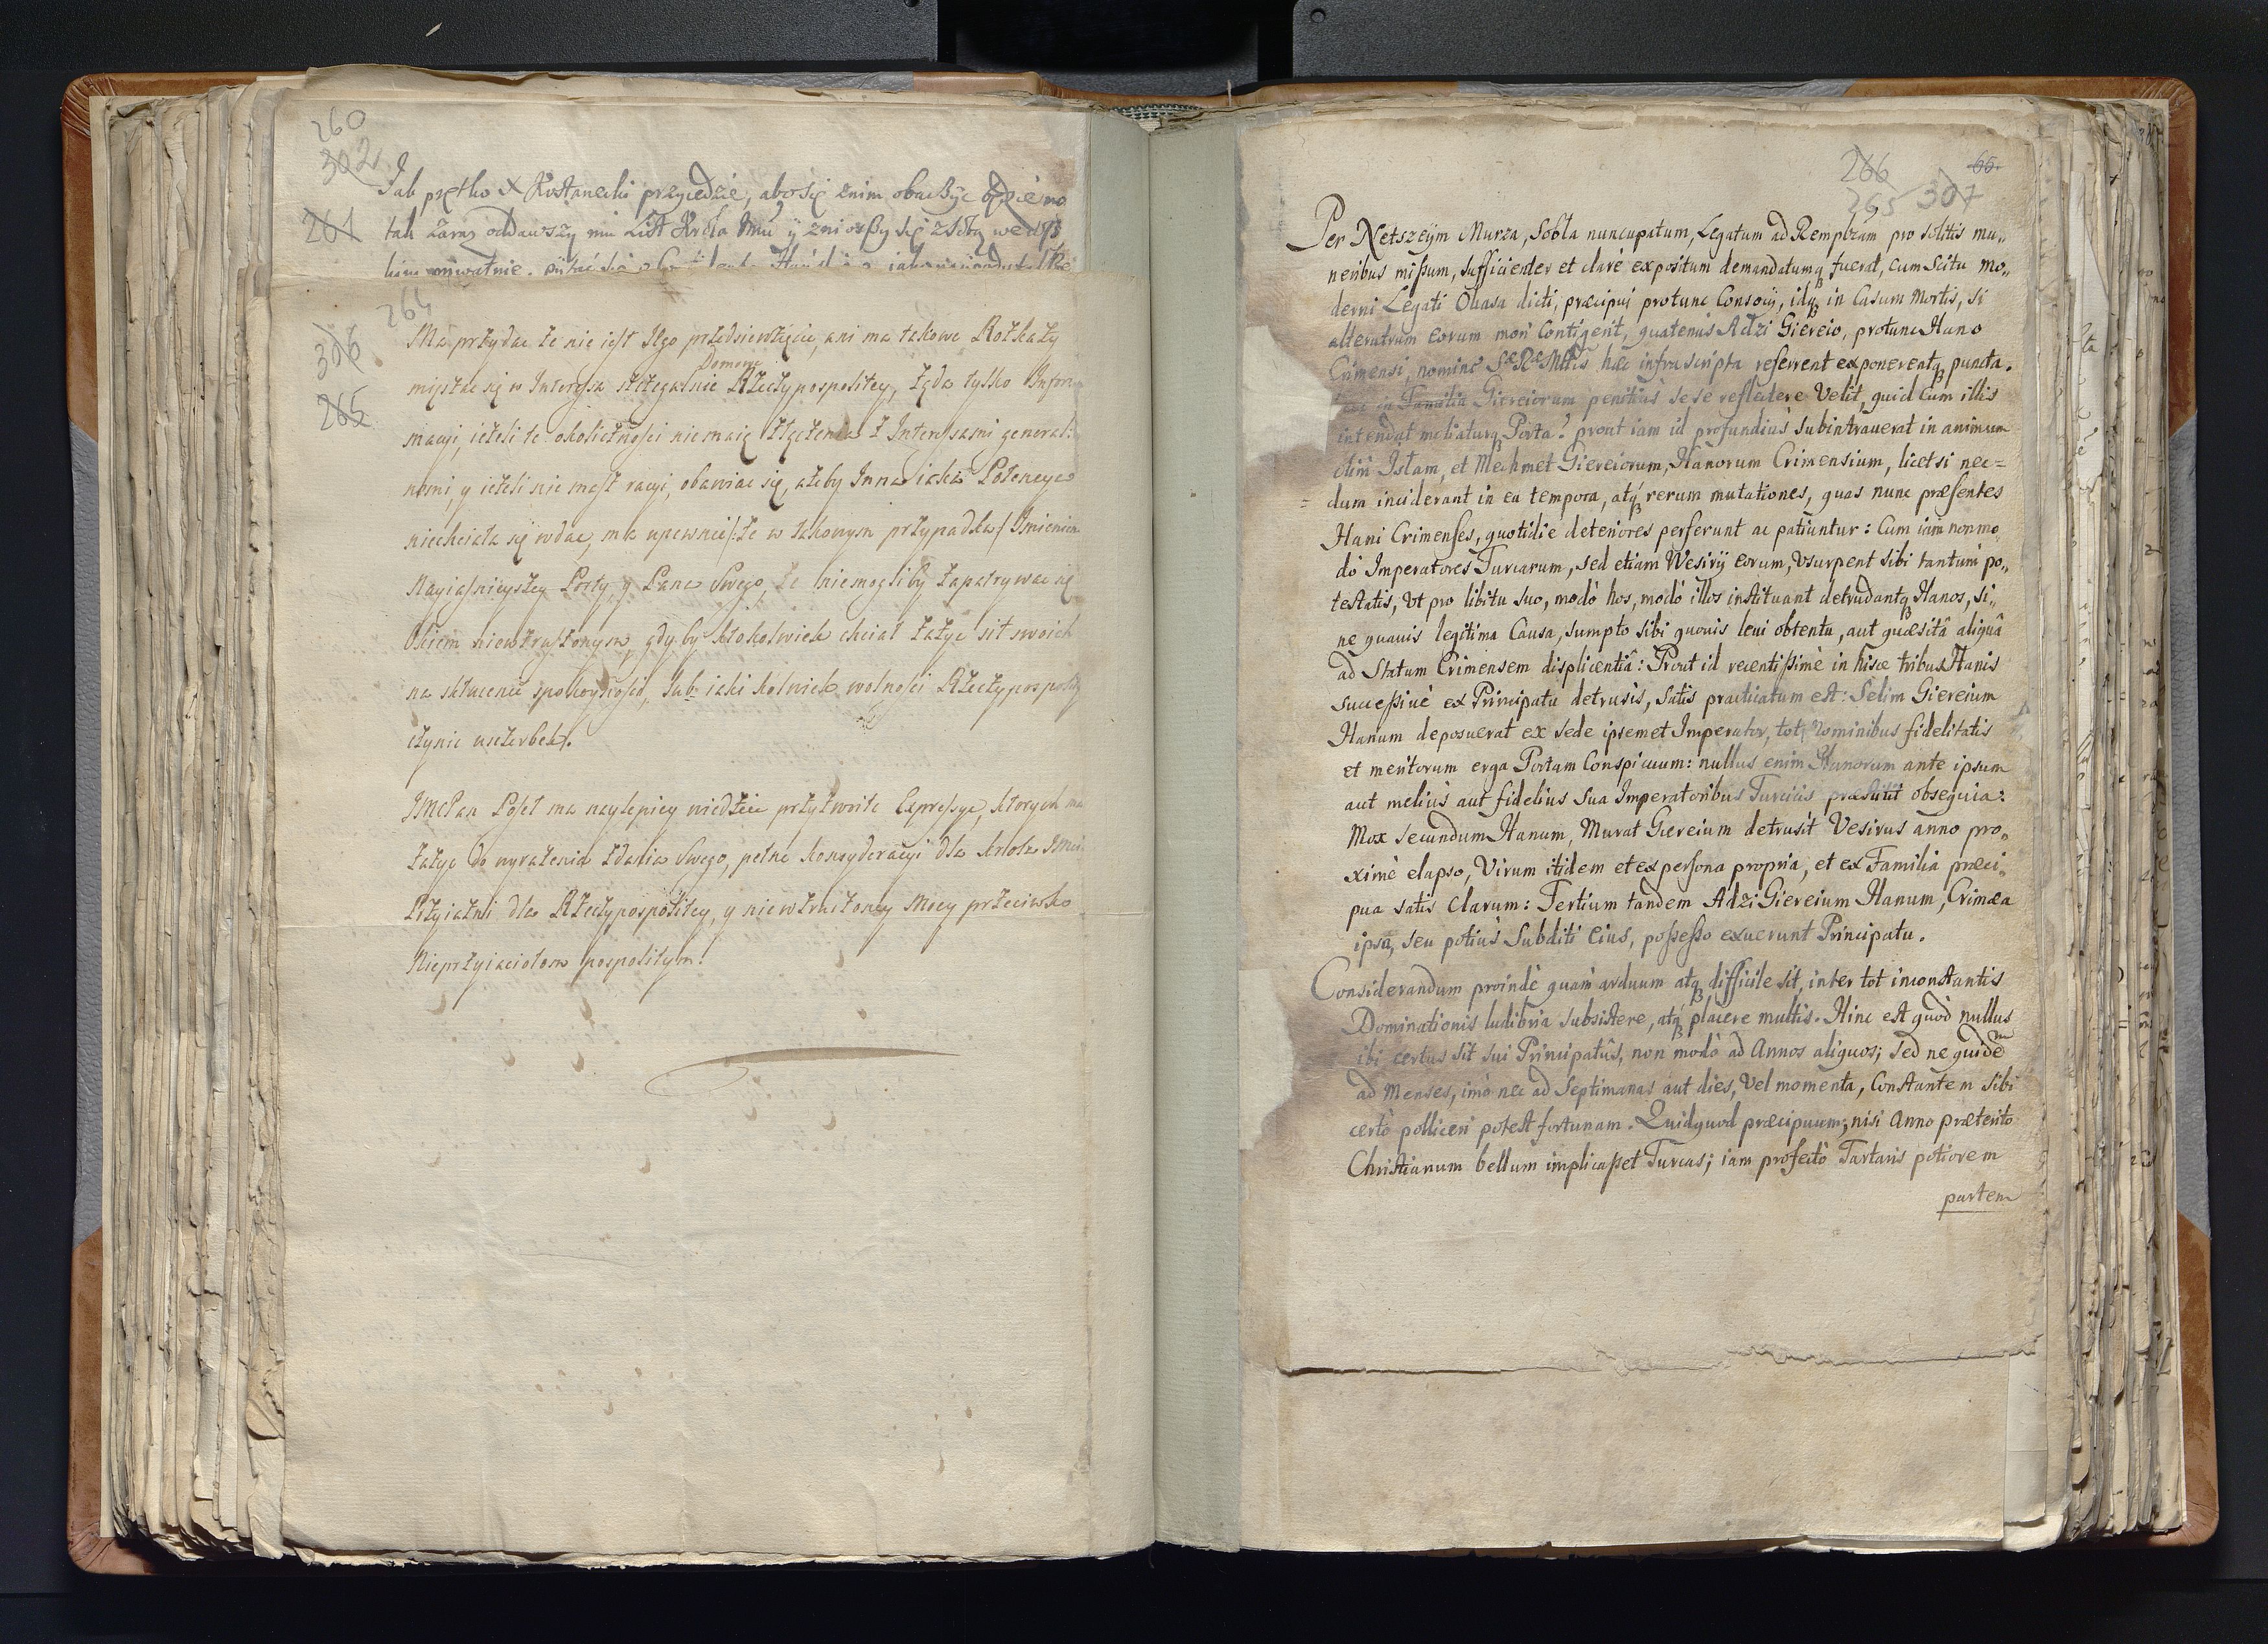 260
302
Jak prętko X Kostanecki przyiedzie, abo się znim obaczyć
261
tak zaraz oddawszy mu List Króla Imci y zniosszy się zsobą wedłg
264
Ma przydac ze nie iest Jego przedsiewzięcie, ani ma takowe Rozkazy
306
Domowe
mięszac się w Interessa szczegulnie Rzeczypospolitey, żąda tylko Infor
265
macyi, ieżeli te okolicznosci niemaią złączenia z Interessami general
nymi, y ieżeli nie masz racyi, obawiac się, ażeby Inna iaka Potencya
niechciała się wdac, ma upewnic /: że w takowym przypadku / Imieniem
Nayiasnieyszey Porty, y Pana Swego, że niemogliby zapatrywac się
Okiem niewzruszonym, gdyby ktokolwiek chciał zażyc sił swoich
na skłucenie spokoynosci, lub iaki kolwiek wolnosci Rzeczypospolitey
czynic uszczerbek.
JMcPan Poseł ma naylepiey wiedziec przyzwoite Expressye, ktorych ma
zażyc do wyrażenia zdania Swego, pełne konsyderacyi dla Krola JMci
Przyiazni dla Rzeczypospolitey, y niewzruszoney Mocy przeciwko
Nieprzyiaciołom pospolitym.
266
65.
265 307
Per Netszeÿm Murza, Sobla nuncupatum, Legatum ad Remplcam pro solitis mu„
neribus missum, sufficienter et clare expositum demandatumq fuerat, cum Scitu mo„
derni Legati Ohasa dicti, præcipui protunc Consocij, idq in Casum Mortis, si
alterutrum eorum mori Contigerit, quatenus Adzi Giereio, protunc Hano
Crimensi, nomine Sæ Ræ Mttis hæc infrascripta referrent exponerentq puncta.
in Familia Giereiorum penitius sese reflectere Velit, quid Cum illis
intendat moliaturq Porta? prout iam id profundius subintrauerat in animum
olim Islam, et Mechmet Giereiorum, Hanorum Crimensium, licet si nec=
= dum inciderant in ea tempora, atq rerum mutationes, quas nunc præsentes
Hani Crimenses, quotidie deteriores perferunt ac patiuntur: Cum iam non mo
do Imperatores Turcarum, sed etiam Wesirij eorum, Vsurpent sibi tantum po„
testatis, Vt pro libitu suo, modò hos, modò illos instituant detrudantq Hanos, si„
ne quauis legitima Causa, sumpto sibi quouis leui obtentu, aut quæsitâ aliquâ
ad Statum Crimensem displicentiâ: Prout id recentissimè in hisce tribus Hanis
successiuè ex Principatu detrusis, satis practicatum est: Selim Giereium
Hanum deposuerat ex sede ipsemet Imperator, tot Nominibus fidelitatis
et meritorum erga Portam Conspicuum: nullus enim Hanorum ante ipsum
aut melius aut fidelius Sua Imperatoribus Turcicis præstitit obsequia:
Mox secundum Hanum, Murat Giereium detrusit Vesirus anno pro„
ximè elapso, Virum itidem et ex persona propria, et ex Familia præci„
pua satis Clarum: Tertium tandem Adzi Giereium Hanum, Crimæa
ipsa, seu potius Subditi Eius, possesso exuerunt Principatu.
Considerandum proindè quam arduum atq difficile sit, inter tot inconstantis
Dominationis ludibria subsistere, atq placere multis. Hinc est quòd nullus
ibi certus sit sui Principatûs, non modò ad Annos aliquos; sed ne quidem
ad Menses, imò nec ad Septimanas aut dies, Vel momenta, Constantem sibi
certò polliceri potest fortunam. Quidquod præcipuum; nisi Anno præterito
Christianum bellum implicasset Turcas; iam profectò Tartaris potiorem
partem